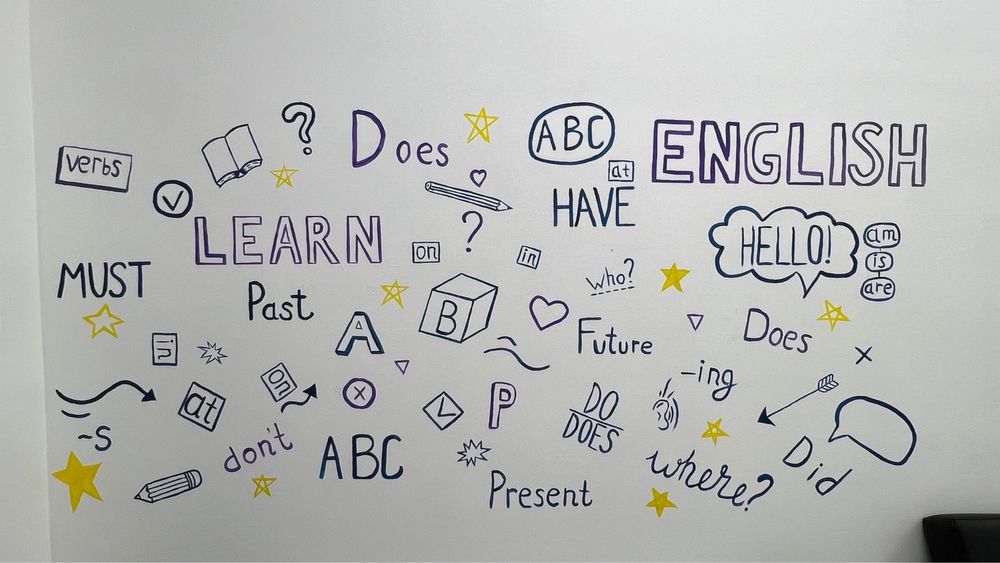 verbs
?
Does
ABC
at
ENGLISH
HAVE
LEARN
?
on
in
HELLO!
am
is
are
MUST
Past
who?
B
A
Future
Does
in
on
at
X
P
DO
DOES
-ing
-s
don't
ABC
Present
where?
Did
x